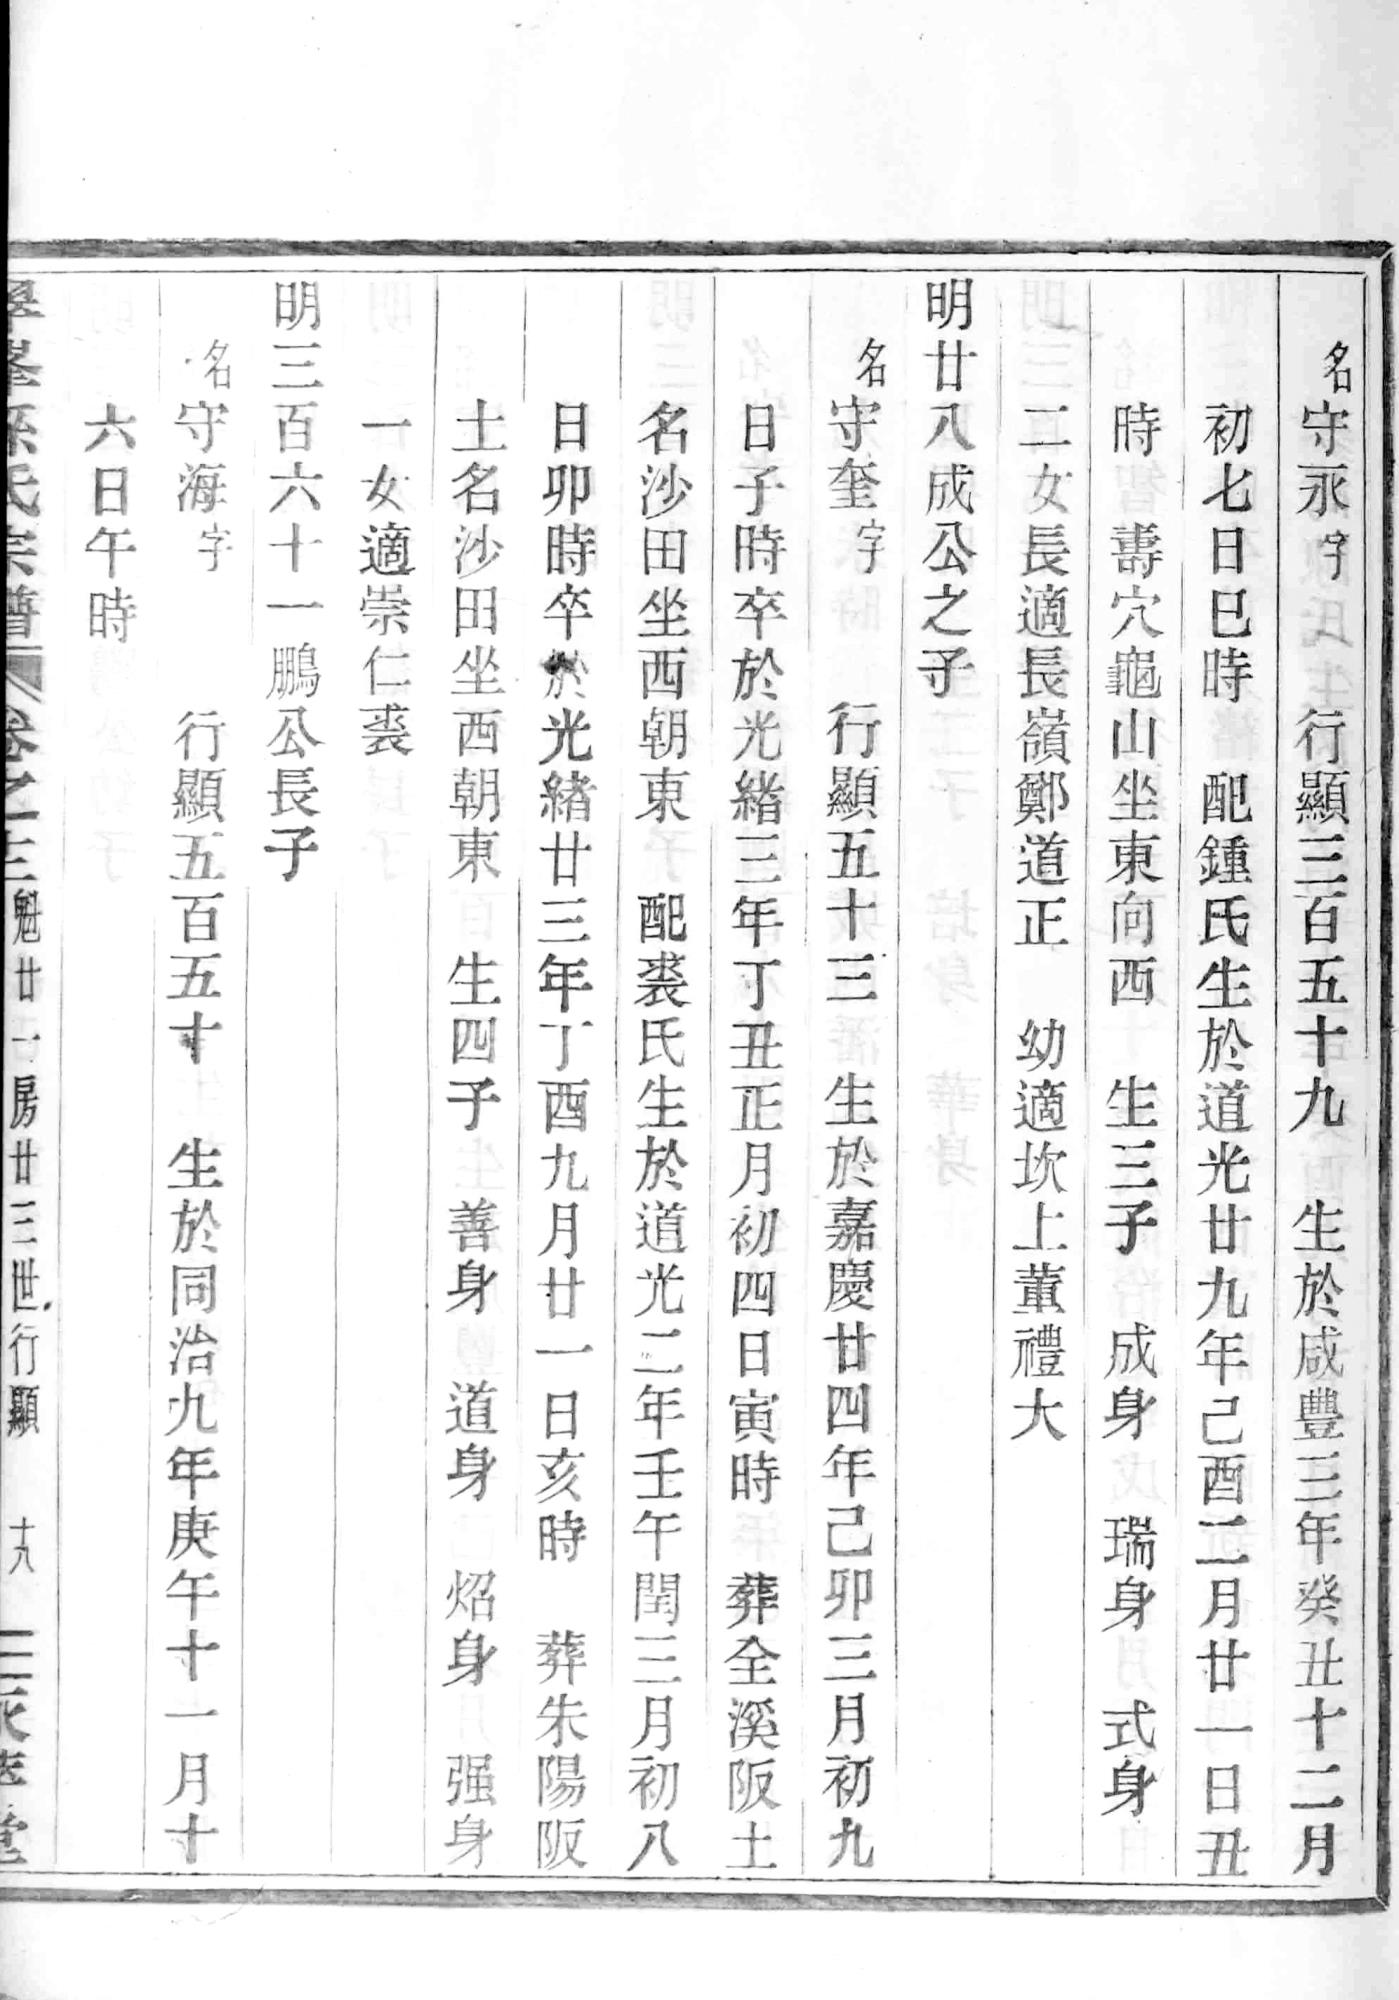 名守永字　行顯三百五十九　生於咸豐三年癸丑十二月
初七日巳時　配鍾氏生於道光廿九年己酉二月廿一日丑
時　壽穴龜山坐東向西　生三子　成身　瑞身　式身
二女長適長嶺鄭道正　幼適坎上董禮大
明廿八成公之子
名守奎字　行顯五十三　生於嘉慶廿四年己卯三月初九
日子時卒於光緒三年丁丑正月初四日寅時　葬全溪阪土
名沙田坐西朝東　配裘氏生於道光二年壬午閏三月初八
日卯時卒於光緒廿三年丁酉九月廿一日亥時　葬朱陽阪
土名沙田坐西朝東　生四子　善身　道身　炤身　强身
一女適崇仁裘
明三百六十一鵬公長子
名守海字　行顯五百五十　生於同治九年庚午十一月十
六日午時
孫氏宗譜　卷之三　魁廿一房廿三世行顯　十八　堂